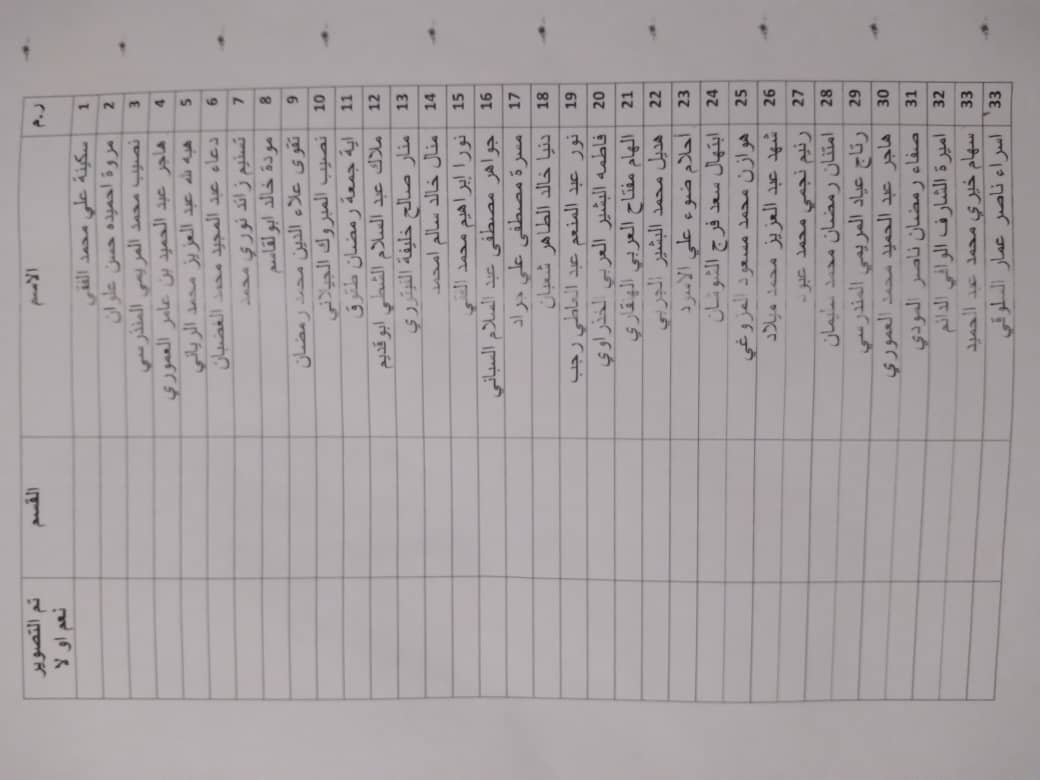 ر.م الاسم القسم تم التصوير نعم او لا
1 سكينة علي محمد الفقي
2 مروة احميده حسن علوان
3 نصيب محمد المريمي المندرسي
4 هاجر عبد الحميد بن عامر العموري
5 هبه لله عبد العزيز محمد الرياني
6 دعاء عبد المجيد محمد الغضبان
7 تسنيم رائد نوري محمد
8 مودة خالد ابولقاسم
9 تقوى علاء الدين محمد رمضان
10 نصيب المبروك الجيلاني
11 اية جمعة رمضان طنوق
12 ملاك عبد السلام الشطي ابوقديم
13 منار صالح خليفة
14 منال خالد سالم امحمد
15 نورا ابراهيم محمد
16 جواهر مصطفى عبد السلام
17 مسرة مصطفى علي جراد
18 دنيا خالد الطاهر شعبان
19 نور عبد المنعم عبد العاطي رجب
20 فاطمه البشير العربي الخذراوي
21 الهام مفتاح العربي الهقاري
22 هديل محمد البشير الجربي
23 احلام ضوء علي الاسود
24 ابتهال سعد فرج الشوشان
25 هوازن محمد مسعود المزوغي
26 شهد عبد العزيز محمد ميلاد
27 رنيم نجمي محمد عبود
28 امتنان رمضان محمد سليمان
29 رتاج عياد المريمي المندرسي
30 هاجر عبد الحميد محمد العموري
31 صفاء رمضان ناصر المودي
32 اميرة الشارف الوافي الدائم
33 سهام خيري محمد عبد الحميد
33 اسراء ناصر عمار السلوقي